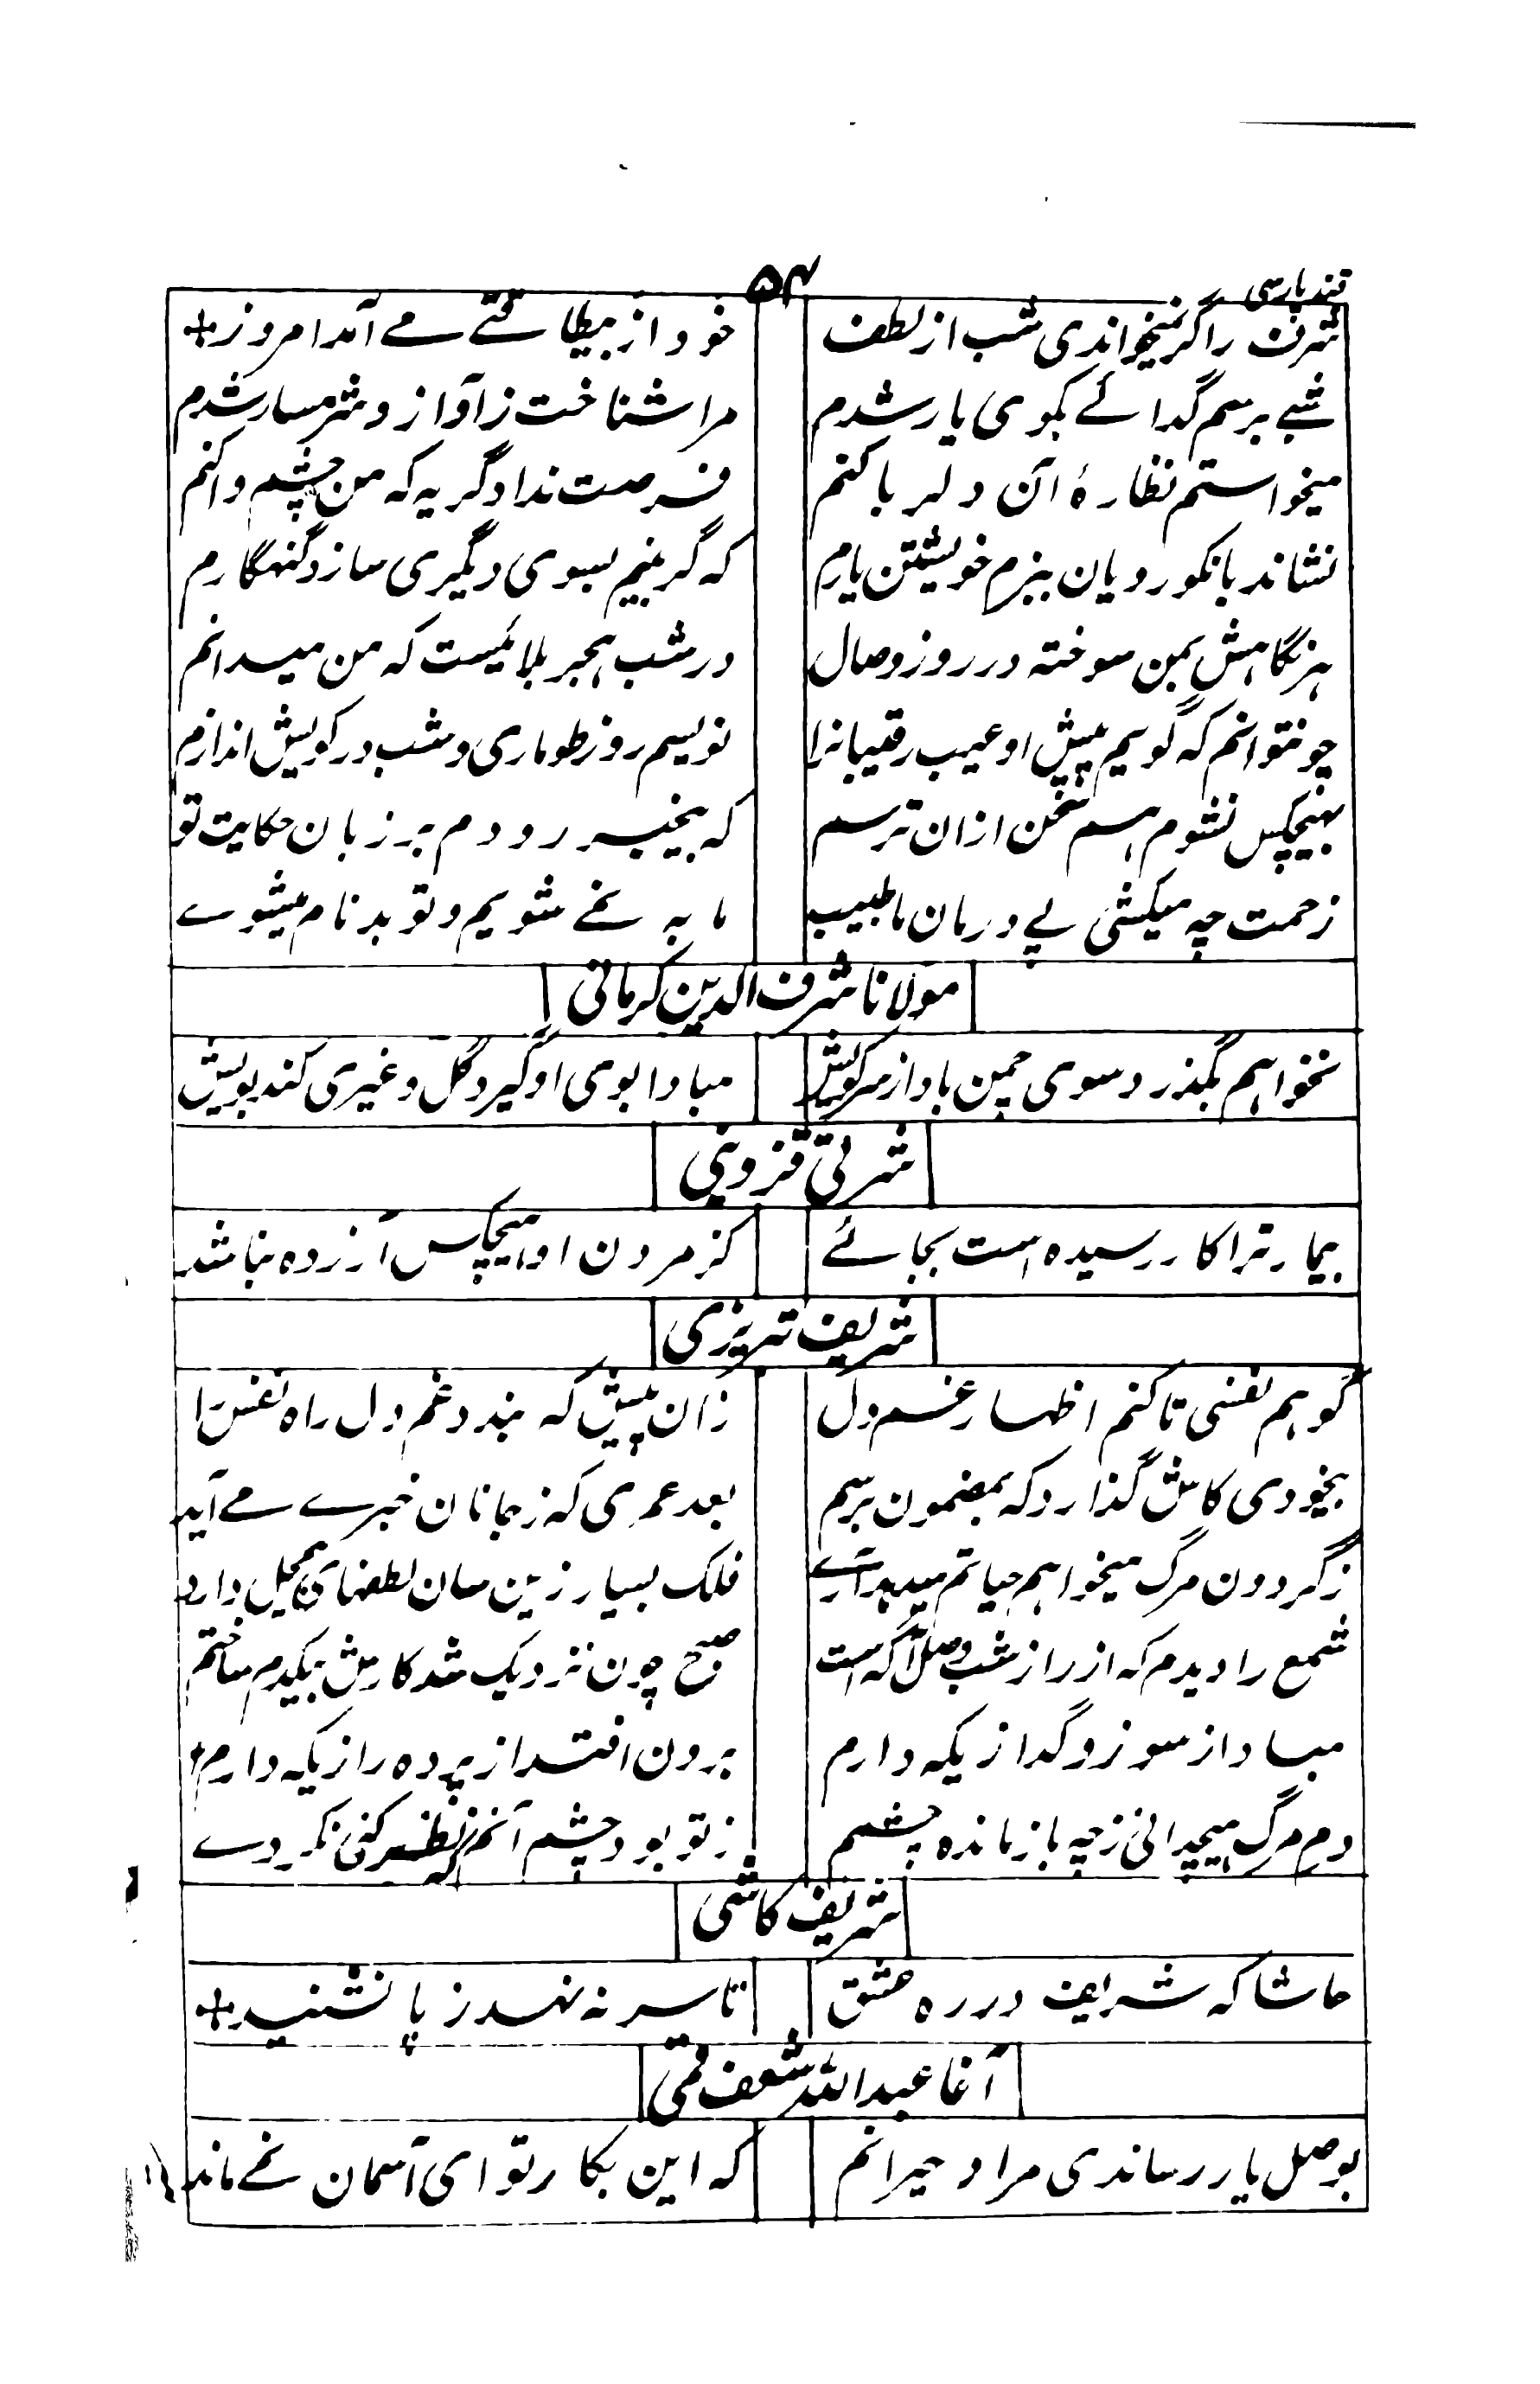 قند پارسی
۵۴
شرف را گر نمیخواندی شب از لطف خود از بیطاقتے مے آمد امروز
شبے برسم گدائے بکوی یار شدم مرا شناخت ز آواز و شرمسار شدم
میخواستم نظارهٔ آن دلربا کنم فرصت نداد گریه که من چشم وا کنم
نشاند با نکورویان ببزم خویشتن یارم که گر بینم بسوی دیگری سازد گنهگارم
هر نگاهش بمن سوخته در روز وصال در شب هجر بلائیست که من میدانم
چو نتوانم که گویم پیش او عیب رقیبانرا نویسم روز طوماری و شب در کویش اندازم
بهیچکس نشوم هم سخن ازان ترسم که بیخبر رودم بر زبان حکایت تو
زحمت چه میکشی پے درمان ما طبیب ما به نمے شویم و تو بدنام میشوے
مولانا شرف الدین کرمانی
نخواهم بگذرد سوی چمن باد از سر کویش مبادا بوی او گیرد گل و غیری کند بویش
شرقی قزوینی
بیمار ترا کار رسیده است بجائے کز مردن او هیچکس آزرده نباشد
شریف تبریزی
کو هم نفسی تا کنم اظهار غم دل زان پیش که بندد غم دل راه نفس را
بیخودی کاش گذارد که بمضمون برسم بعد عمری که ز جانان خبرے مے آید
ز گردون مرگ میخواهم حیاتم میدهد آرے فلک بسیار زین سان لطفهای بیمحل دارد
شمع را دیدم که از راز شب وصل آگه است صبح چون نزدیک شد کارش بیکدم ساختم
مباد از سوز و گدازیکه دارم برون افتد از پرده رازیکه دارم
دم مرگ هیچ دانی ز چه باز مانده چشمم ز تو بود چشم آنم که نظر کنی نکردے
شریف کاشی
حاشا که شریف در ره عشق تا سر نه نهد ز پا نشیند
آغا عبدالله شعف قمی
بوصل یار رساندی مرا و حیرانم که این بکار تو ای آسمان نمے ماند